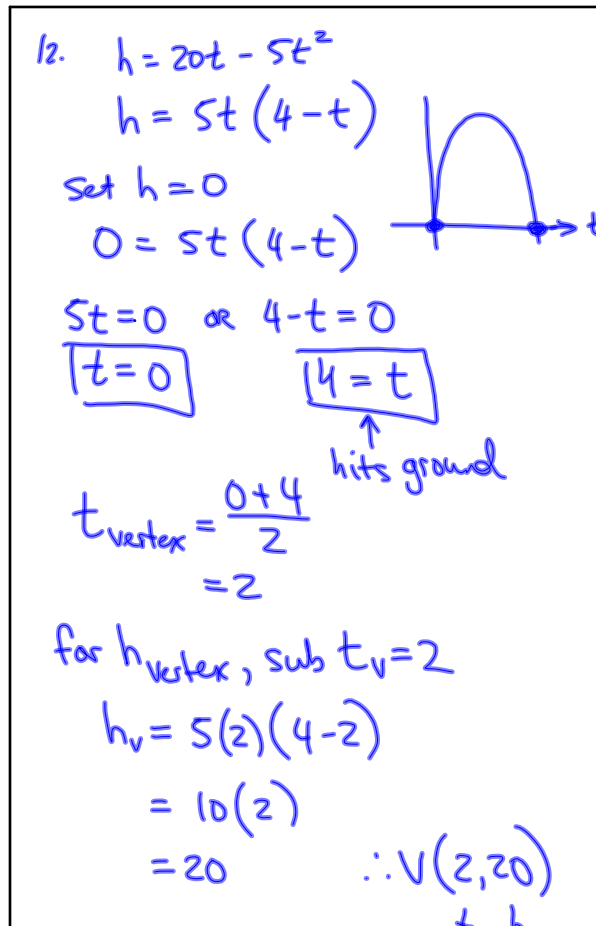 12. h = 20t - 5t²
h = 5t (4 - t)
set h = 0
0 = 5t (4 - t)
t
5t = 0 or 4 - t = 0
t = 0 4 = t
↑
hits ground
t_vertex = (0 + 4)/2
= 2
for h_vertex, sub t_v = 2
h_v = 5(2)(4 - 2)
= 10(2)
= 20 ∴ V(2,20)
t h